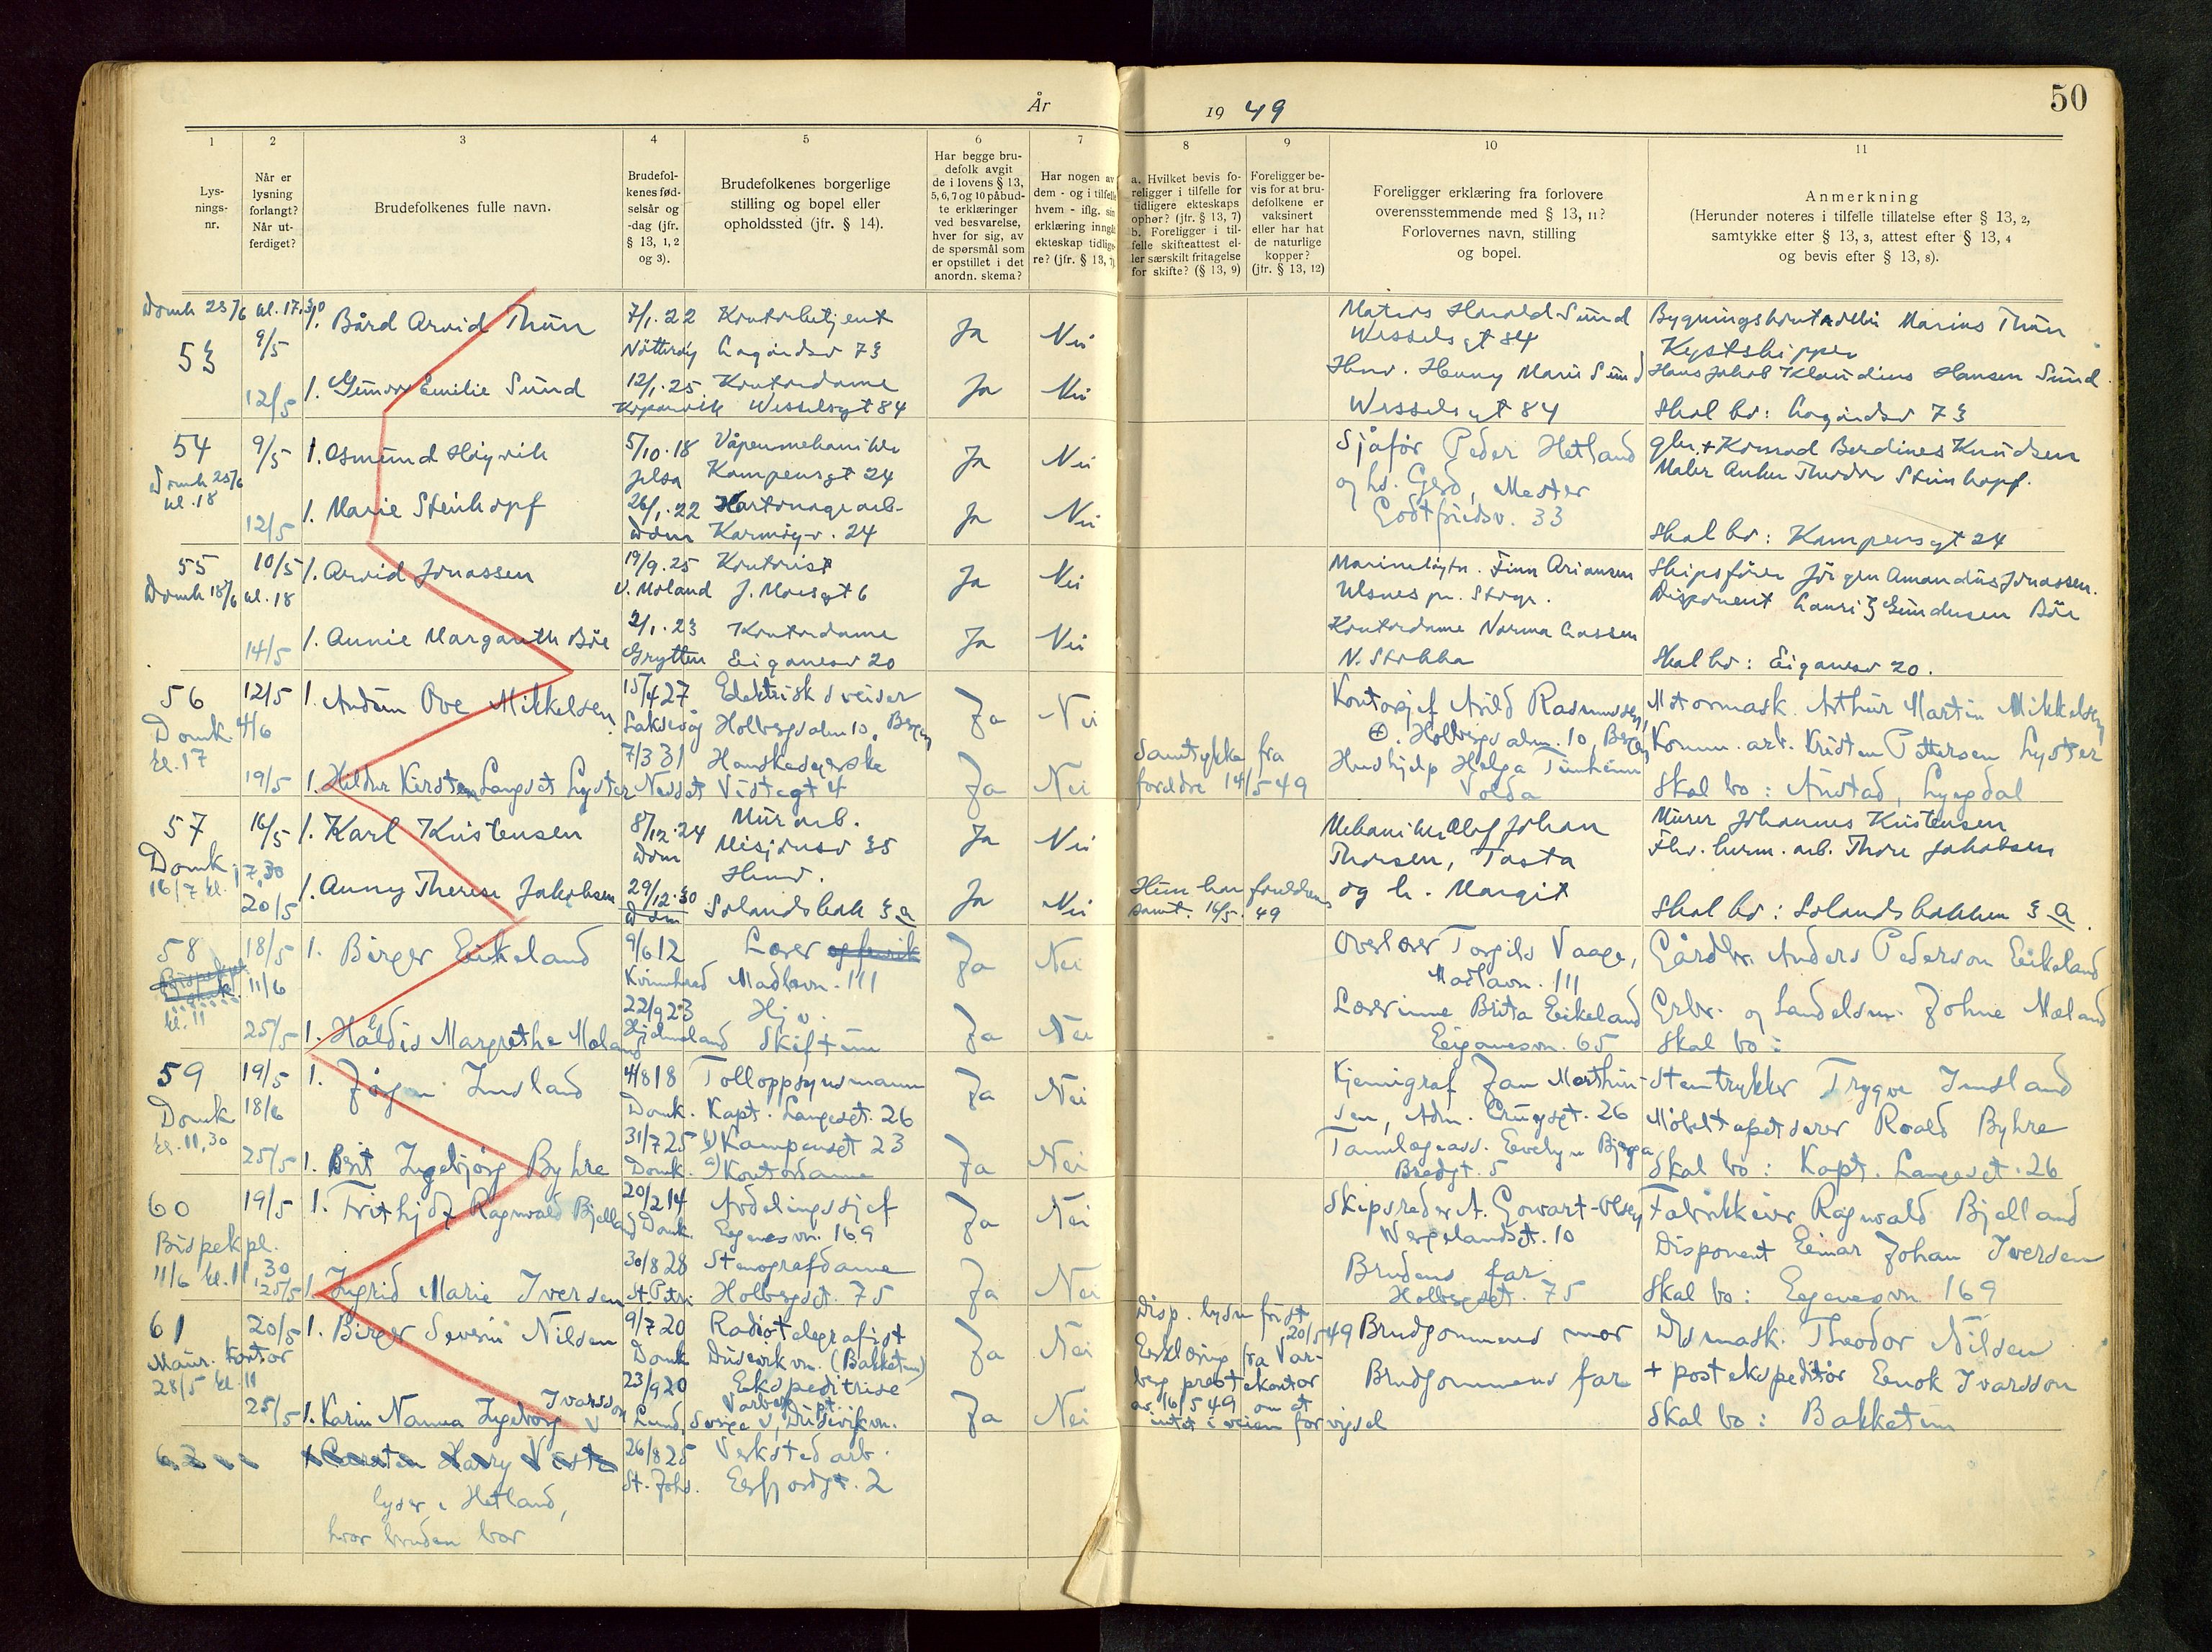 År 1949
50
1
Lys-
nings-
nr.
2
Når er
lysning
forlangt?
Når ut-
ferdiget?
3
Brudefolkenes fulle navn.
4
Brudefol-
kenes fød-
selsår og
-dag (jfr.
§ 13, 1, 2
og 3).
5
Brudefolkenes borgerlige
stilling og bopel eller
opholdssted (jfr. § 14).
6
Har begge bru-
defolk avgit
de i lovens § 13,
5, 6, 7 og 10 påbud-
te erklæringer
ved besvarelse,
hver for sig, av
de spørsmål som
er opstillet i det
anordn. skema?
7
Har nogen av
dem - og i tilfelle
hvem - iflg. sin
erklæring inngått
ekteskap tidlige-
re? (jfr. § 13, 7)
8
a. Hvilket bevis fo-
religger i tilfelle for
tidligere ekteskaps
ophør? (jfr. § 13, 7)
b. Foreligger i til-
felle skifteattest el-
ler særskilt fritagelse
for skifte? (§ 13, 9)
9
Foreligger be-
vis for at bru-
defolkene er
vaksinert
eller har hat
de naturlige
kopper?
(jfr. § 13, 12)
10
Foreligger erklæring fra forlovere
overensstemmende med § 13, 11?
Forlovernes navn, stilling
og bopel.
11
Anmerkning
(Herunder noteres i tilfelle tillatelse efter § 13, 2,
samtykke efter § 13, 3, attest efter § 13, 4
og bevis efter § 13, 8).
Domk 25/6 kl. 17.30
53 9/5 1. Bård Arvid Thun 7/1.22 Kontorbetjent Ja Nei
Nøtterøy Lagårdsv 73
12/5 1. Gunvor Emilie Sund 12/1.25 Kontordame Ja Nei
Kopervik Wesselsgt 84
Harald Sund
Wesselsgt 84
Husv. Henny Marie Sund
Wesselsgt 84
Marius Thun
Kystskipper
Hans Jakob Klaudius Hansen Sund
Skal bo: Lagårdsv 73
54 9/5 1. Osmund Høyvik 5/10.18 Våpenmekaniker Ja Nei
Domk 25/6
kl. 18
Jelsa Kampensgt 24
12/5 1. Marie Steinkopf 26/1.22 Kartonagearb. Ja Nei
Dom Karmøyv. 24
Sjåfør Peder Hetland
og h. Gerd, Mester
Godtfredsv. 33
gbr. + Konrad Berdines Knudsen
Maler Anker Theodor Steinkopf.
Skal bo: Kampensgt 24
55 10/5 1. Arvid Jonassen 19/9.25 Kontorist Ja Nei
Domk 18/6 kl. 18
V. Moland J. Moesgt 6
14/5 1. Annie Margareth Bøe 2/1.23 Kontordame Ja Nei
Grytten Eiganesv 20
Finn Ariansen
Ulsnes pr. Stvgr.
Kontordame Norma Lassen
N. Stokka
Skipsfører Jørgen Amandus Jonassen.
Disponent Lauritz Gundersen Bøe
Skal bo: Eiganesv 20.
56 12/5 1. Audun Ove Mikkelsen 15/4 27 Elektrisk sveiser Ja Nei
Domk. 4/6
kl. 17
Laksevåg Holbergsalm 10, Bergen
19/5 1. Hildur Kirsten Langset Lyster 7/3 31 Hanskesyerske Ja Nei
Nesset Vistegt 4
Samtykke fra
foreldre 14/5 49
Kontorsjef Arild Rasmussen,
Holbergsalm. 10, Bergen
Hushjelp Helga Timheim
Volda
Motormask. Arthur Martin Mikkelsen
Komm. arb. Kristen Pettersen Lyster
Skal bo: Austad, Lyngdal
57 16/5 1. Karl Kristensen 8/12.24 Murarb. Ja Nei
Domk
16/7 kl. 17.30
Dom Misjonsv 35
20/5 1. Anny Therese Jakobsen 29/12.30 Husv. Ja Nei
Dom Solandsbak 3 a
Hun har foreldres
samt. 16/5.49
Mekaniker Olaf Johan
Thorsen, Tasta
og h. Margit
Murer Johannes Kristensen
Fhv. herm. arb. Thore Jakobsen
Skal bo: Solandsbakken 3 a.
58 18/5 1. Birger Eikeland 9/6 12 Lærer Ja Nei
11/6
kl. 11
Kvinnherad Madlavn. 111
25/5 1. Haldis Margrethe Mæland 22/9 23 Hjv. Ja Nei
Hjelmeland Skiftun
Overlærer Torgils Vaage,
Madlavn. 111
Lærerinne Brita Eikeland
Eiganesvn. 65
Gårdbr. Anders Pederson Eikeland
Grbr. og Landelsm. Johne Mæland
Skal bo:
59 19/5 1. Jørgen Imsland 4/8 18 Tolloppsynsmann Ja Nei
Domk 18/6
kl. 11,30
Domk. Kapt. Langesgt. 26
25/5 1. Berit Ingebjørg Byhre 31/7 25 b) Kampensgt 23 Ja Nei
Domk. a) Kontordame
Kjemigraf Jan Morthin-
sen, Adm. Cruysgt. 26
Tannlegeass. Evelyn Bjerga
Bredgt. 5
Stentrykker Trygve Imsland
Møbeltapetserer Roald Byhre
Skal bo: Kapt. Langesgt. 26
60 19/5 1. Frithjof Ragnvald Bjelland 20/2 14 Avdelingssjef Ja Nei
Bispekpl.
11/6 kl. 11.30
Domk. Eiganesvn. 169
25/5 1. Ingrid Marie Iversen 30/8 28 Stenografdame Ja Nei
St. Petri Holbergsgt. 75
Skipsreder A. Gowart-Olsen
Wergelandsgt. 10
Brudens far
Holbergsgt. 75
Fabrikkeier Ragnvald Bjelland
Disponent Einar Johan Iversen
Skal bo: Eiganesvn 169
61 20/5 1. Birger Severin Nilsen 9/7 20 Radiotelegrafist Ja Nei
kontor
28/5 kl. 11
Domk Dusevikvn. (Bakketun)
25/5 1. Karin Nanna Ingeborg Ivarsson 23/9 20 Ekspeditrise Ja Nei
Lund, Sverige Varberg, Dusevikvn.
Disp. lysn frist
20/5 49
Erklæring fra Var-
berg prestekontor
av 16/5 49 om at
intet i veien for vigsel
Brudgommens mor
Brudgommens far
Theodor Nilsen
+ postekspeditør Enok Ivarsson
Skal bo: Bakketun
62 1. Karsten Harry Viste 26/8 25 Verkstedarb.
St. Johs. Erfjordgt. 2
lyser i Hetland,
hvor bruden bor